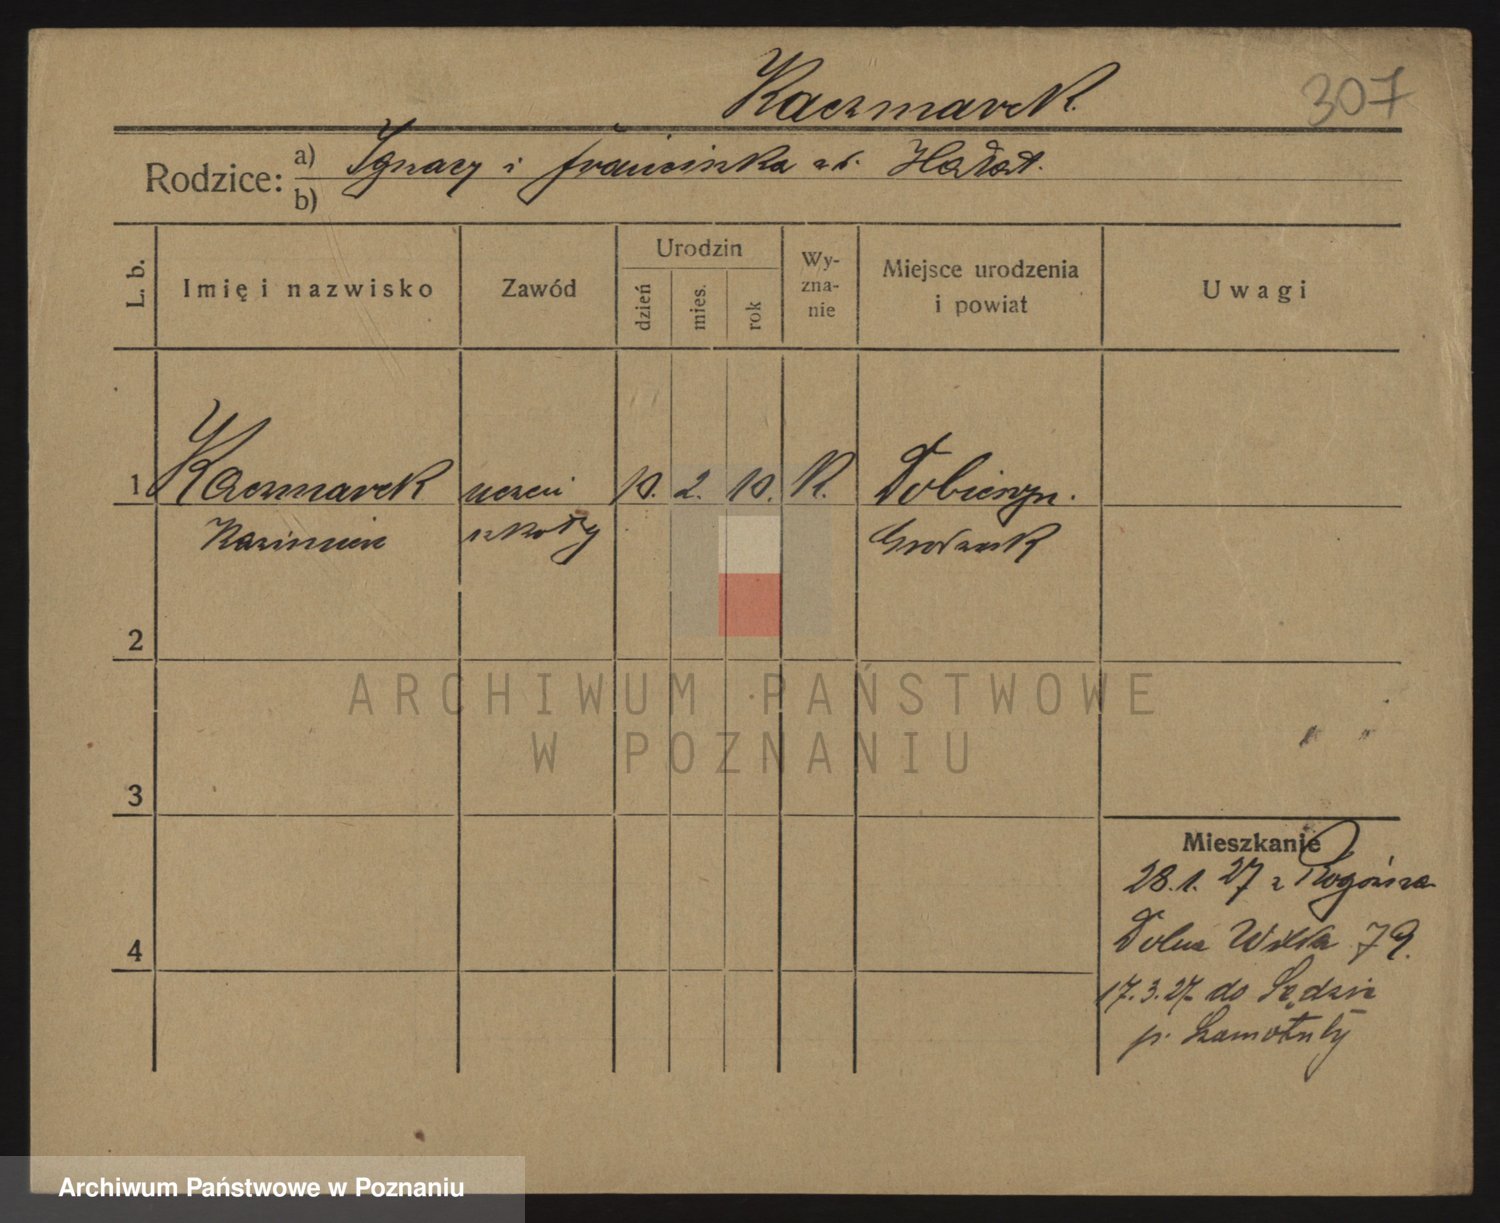 Kaczmarek.
307
Rodzice: a) Ignacy i Franciszka z d. Hałas.
b)
L. b.
Imię i nazwisko
Zawód
Urodzin
dzień
mies.
rok
Wy-
zna-
nie
Miejsce urodzenia
i powiat
Uwagi
1 Kaczmarek uczeń 10. 2. 10. R. Dobieżyn.
Kazimierz szkoły Grodzisk
2
3
4
Mieszkanie
28.1.27 z Rogoźna
Dolna Wilda 79.
17.3.27 do Sędzin
p. Szamotuły
ARCHIWUM PAŃSTWOWE
W POZNANIU
Archiwum Państwowe w Poznaniu